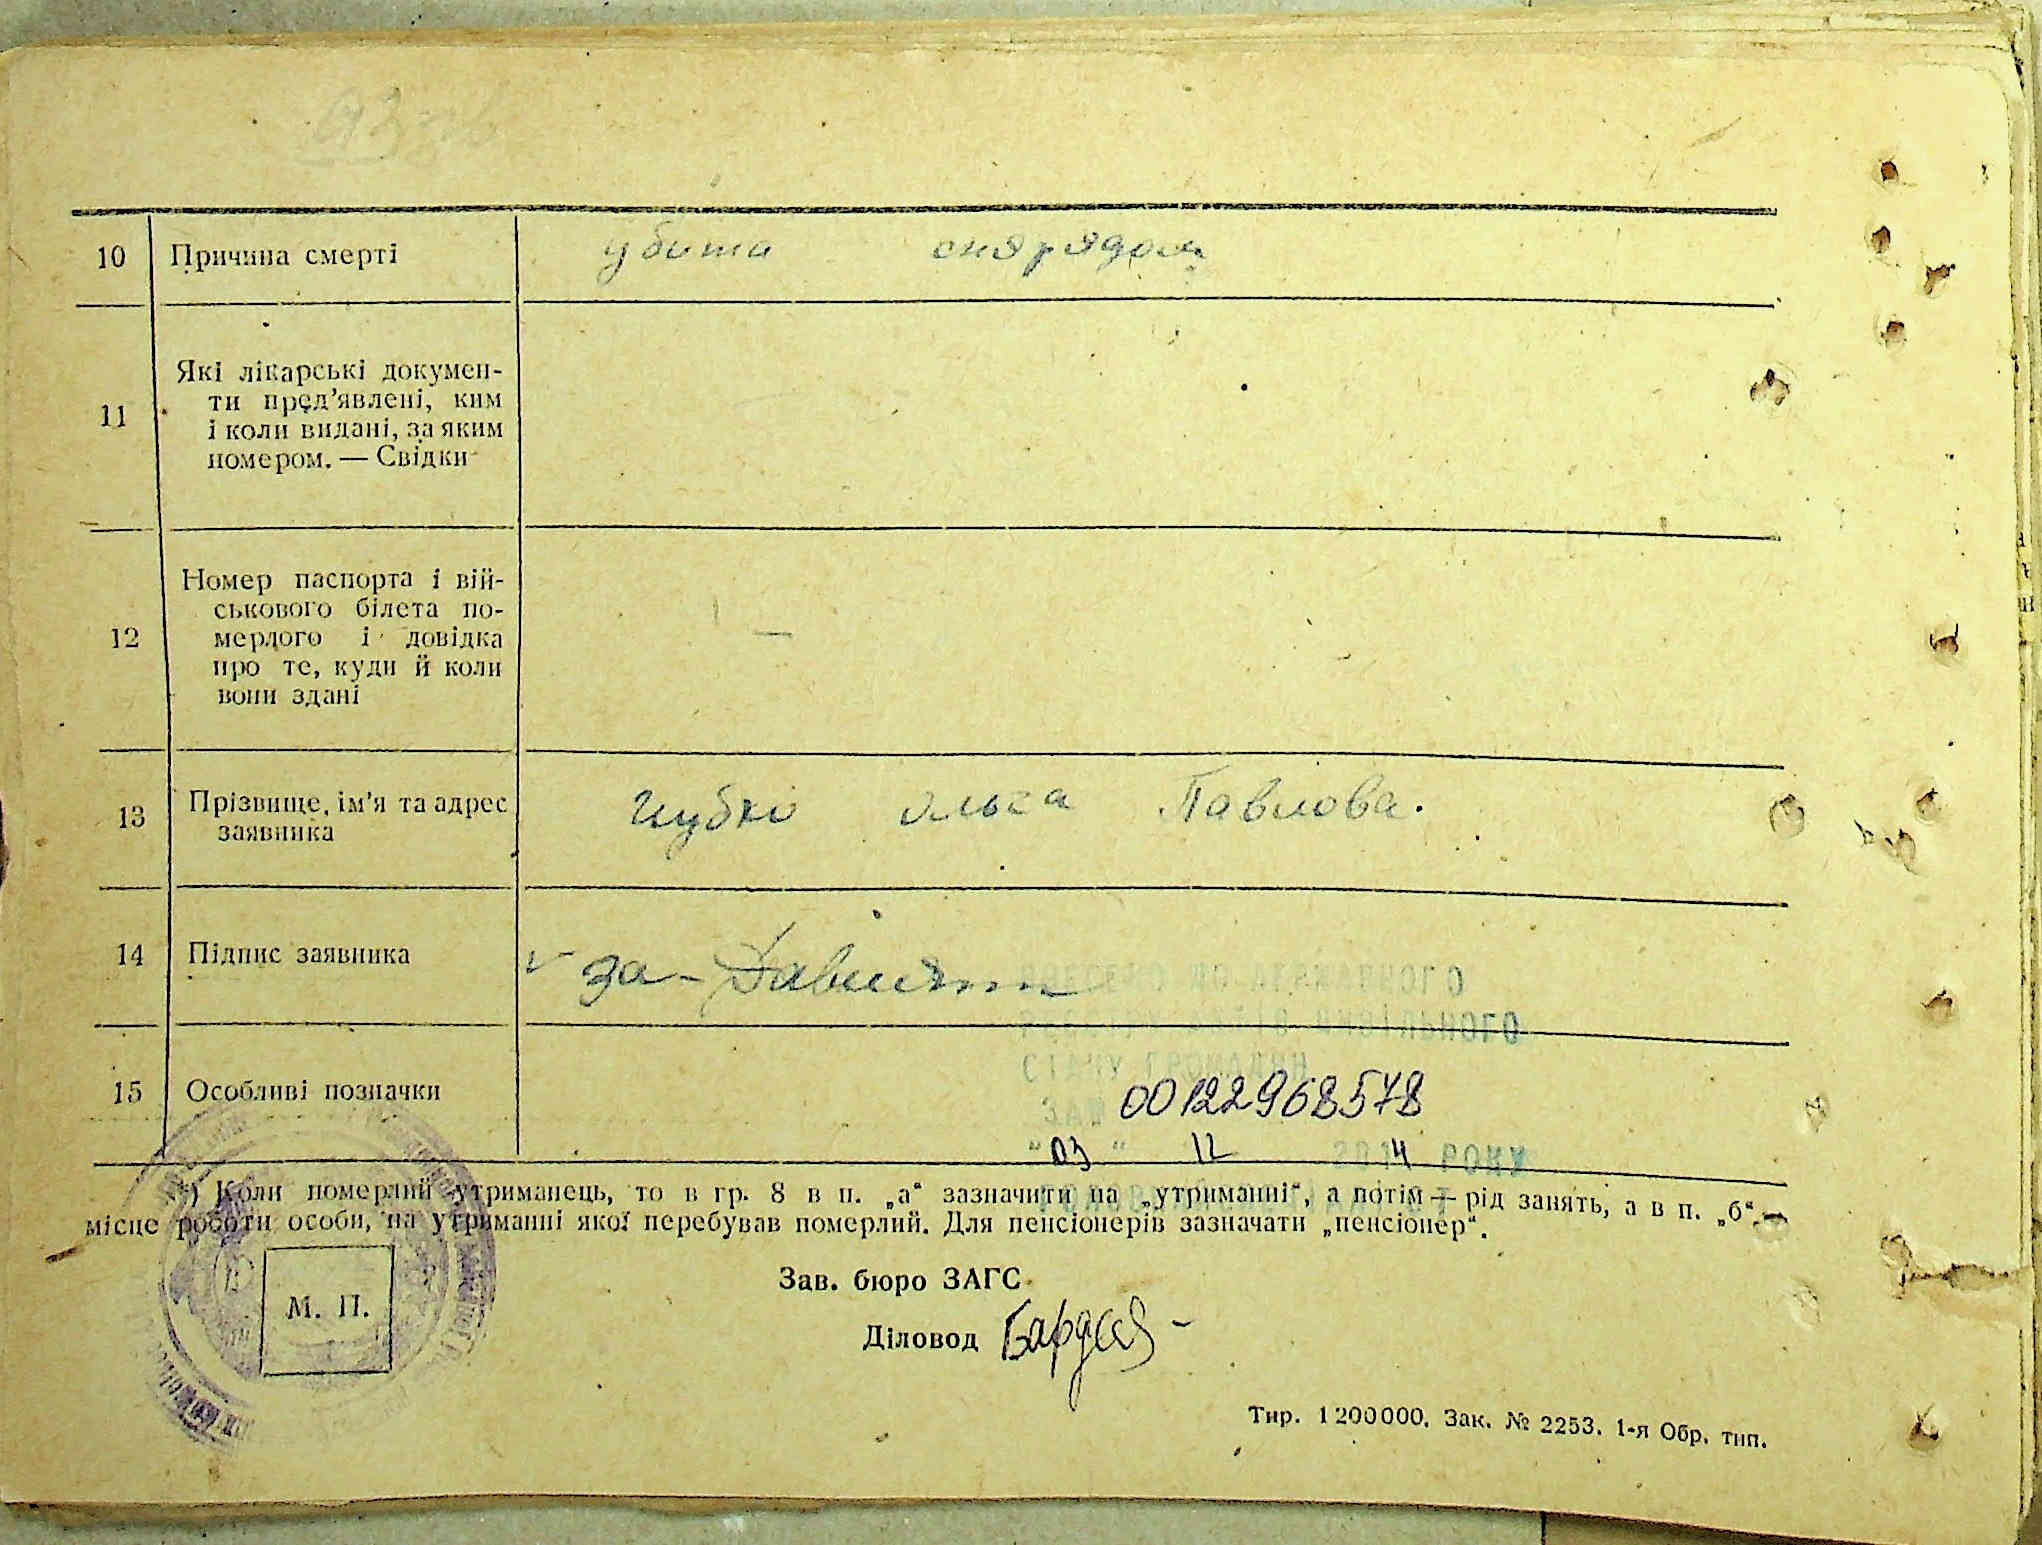 10 Причина смерті убита снарядом
11 Які лікарські докумен-
ти пред'явлені, ким
і коли видані, за яким
номером. — Свідки
12 Номер паспорта і вій-
ськового білета по-
мерлого і довідка
про те, куди й коли
вони здані —
13 Прізвище, ім'я та адрес Губко Ольга Павлова.
заявника
14 Підпис заявника за-
ДЕРЖАВНОГО
РЕЄСТРУ АКТІВ ЦИВІЛЬНОГО
СТАНУ ГРОМАДЯН
15 Особливі позначки
ЗА № 00122968578
"03" 12 2014 РОКУ
*) Коли померлий утриманець, то в гр. 8 в п. „а“ зазначити на „утриманні“, а потім — рід занять, а в п. „б“ —
місце роботи особи, на утриманні якої перебував померлий. Для пенсіонерів зазначати „пенсіонер“.
М. П.
Зав. бюро ЗАГС
Діловод
Тир. 1200000. Зак. № 2253. 1-я Обр. тип.